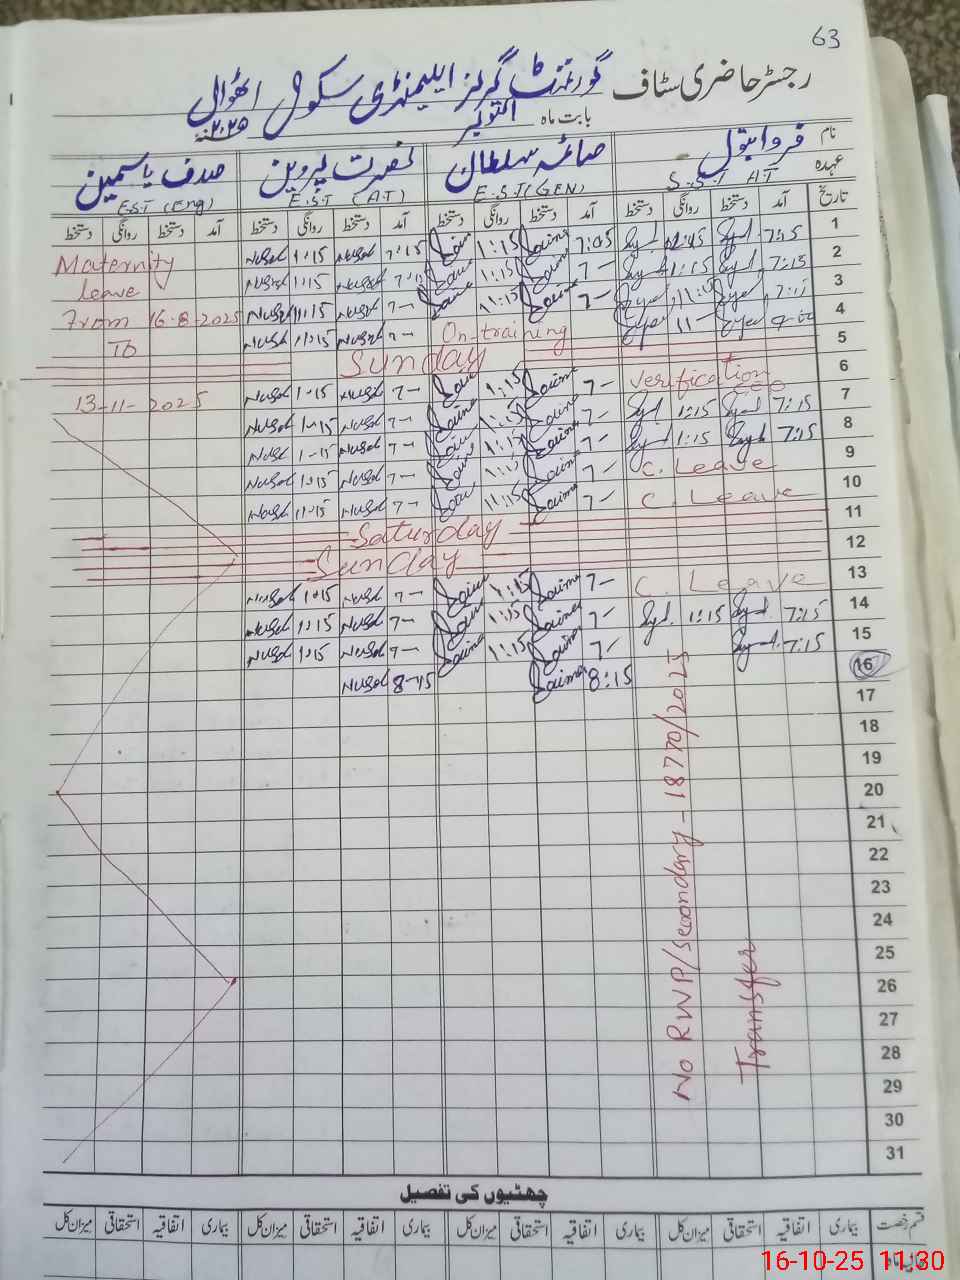 63
رجسٹر حاضری سٹاف گورنمنٹ گرلز ایلیمنٹری سکول اٹھوال
بابت ماہ اکتوبر ۲۰۲۵
نام فروا بتول صائمہ سلطان نصرت پروین صدف یاسمین
عہدہ S.S.T AT E.S.T(GEN) E.S.T (AT) EST (Eng)
تاریخ آمد دستخط روانگی دستخط آمد دستخط روانگی دستخط آمد دستخط روانگی دستخط آمد دستخط روانگی دستخط
1 7:15 7:05 Saima 1:15 7:15 Nusrat 1:15 Nusrat Maternity
2 7:15 1:15 7- Saima 1:15 7:15 Nusrat 1:15 Nusrat leave
3 7- Saima 1:15 7- Nusrat 1:15 Nusrat From 16-8-2025
4 On-training 7- Nusrat 1:15 Nusrat To
5 Sunday
6 Verification CEO 7- Saima 1:15 7- Nusrat 1-15 Nusrat 13-11-2025
7 7:15 1:15 7- Saima 1:15 7- Nusrat 1-15 Nusrat
8 7:15 1:15 7- Saima 1:15 7- Nusrat 1-15 Nusrat
9 C. Leave 7- Saima 1:15 7- Nusrat 1:15 Nusrat
10 C. Leave 7- Saima 1:15 7- Nusrat 1:15 Nusrat
11 Saturday
12 Sunday
13 C. Leave 7- Saima 1:15 7- Nusrat 1:15 Nusrat
14 7:15 1:15 7- Saima 1:15 7- Nusrat 1:15 Nusrat
15 7:15 7- Saima 1:15 7- Nusrat 1:15 Nusrat
16 8:15 Saima 8-15 Nusrat
17
18
19
20
21
22
23
24
25
26
27
28
29
30
31
No RWP/Secondary - 18770/2025
Transfer
چھٹیوں کی تفصیل
قسم رخصت بیماری اتفاقیہ استحقاقی میزان کل بیماری اتفاقیہ استحقاقی میزان کل بیماری اتفاقیہ استحقاقی میزان کل بیماری اتفاقیہ استحقاقی میزان کل
16-10-25 11:30